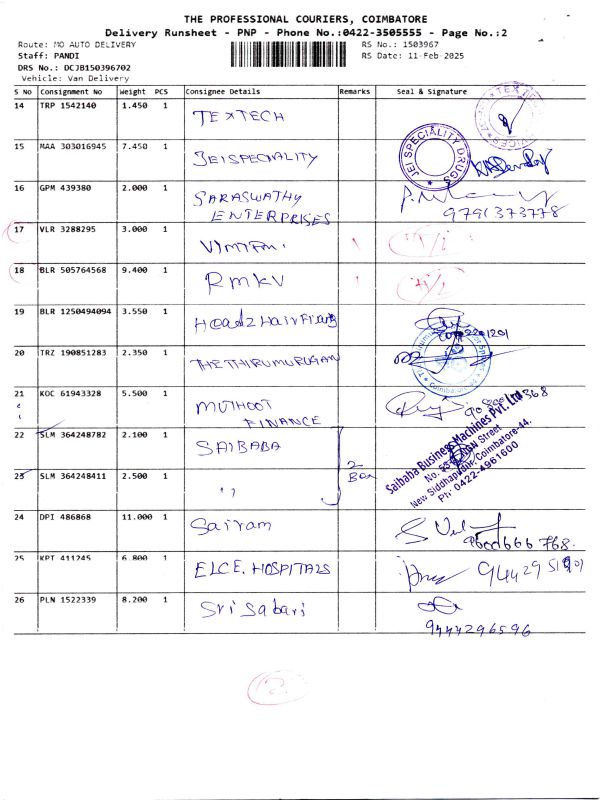 THE PROFESSIONAL COURIERS, COIMBATORE
Delivery Runsheet - PNP - Phone No.:0422-3505555 - Page No.:2
Route: MO AUTO DELIVERY RS No.: 1503967
Staff: PANDI RS Date: 11-Feb-2025
DRS No.: DCJB150396702
Vehicle: Van Delivery
S No Consignment No Weight PCS Consignee Details Remarks Seal & Signature
14 TRP 1542140 1.450 1 TEXTECH
15 MAA 303016945 7.450 1 JEISPECIALITY JEI SPECIALITY DRUGS
16 GPM 439380 2.000 1 SARASWATHY
ENTERPRISES 9791373778
17 VLR 3288295 3.000 1
18 BLR 505764568 9.400 1 RMKV
19 BLR 1250494094 3.550 1
20 TRZ 190851283 2.350 1 THETHIRUMURUGAN
21 KOC 61943328 5.500 1 MUTHOOT
FINANCE
22 SLM 364248782 2.100 1 SAIBABA
Saibaba Business Machines Pvt. Ltd
New Siddhapudur, Coimbatore-44.
Ph: 0422-4961600
23 SLM 364248411 2.500 1 " 2
Box
24 DPI 486868 11.000 1 Sairam
25 KPT 411245 6.800 1 ELCE. HOSPITALS
26 PLN 1522339 8.200 1 Sri Sabari
9444296596